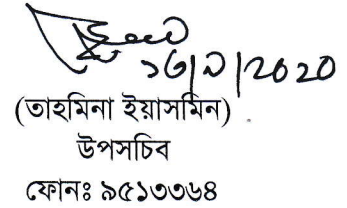 ১৬|৯|২০২০
(তাহমিনা ইয়াসমিন)
উপসচিব
ফোনঃ ৯৫১৩৩৬৪